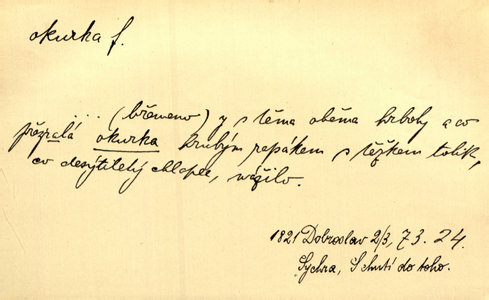 okurka f.
.... (břemeno) y s těma oběma hrboly a co
přezralá okurka hrubým rapákem s těžkem tolik,
co desýtiletý chlapec, vážilo.
1821 Dobroslav 2/3, 73. 24.
Sychra, S chutí do toho.